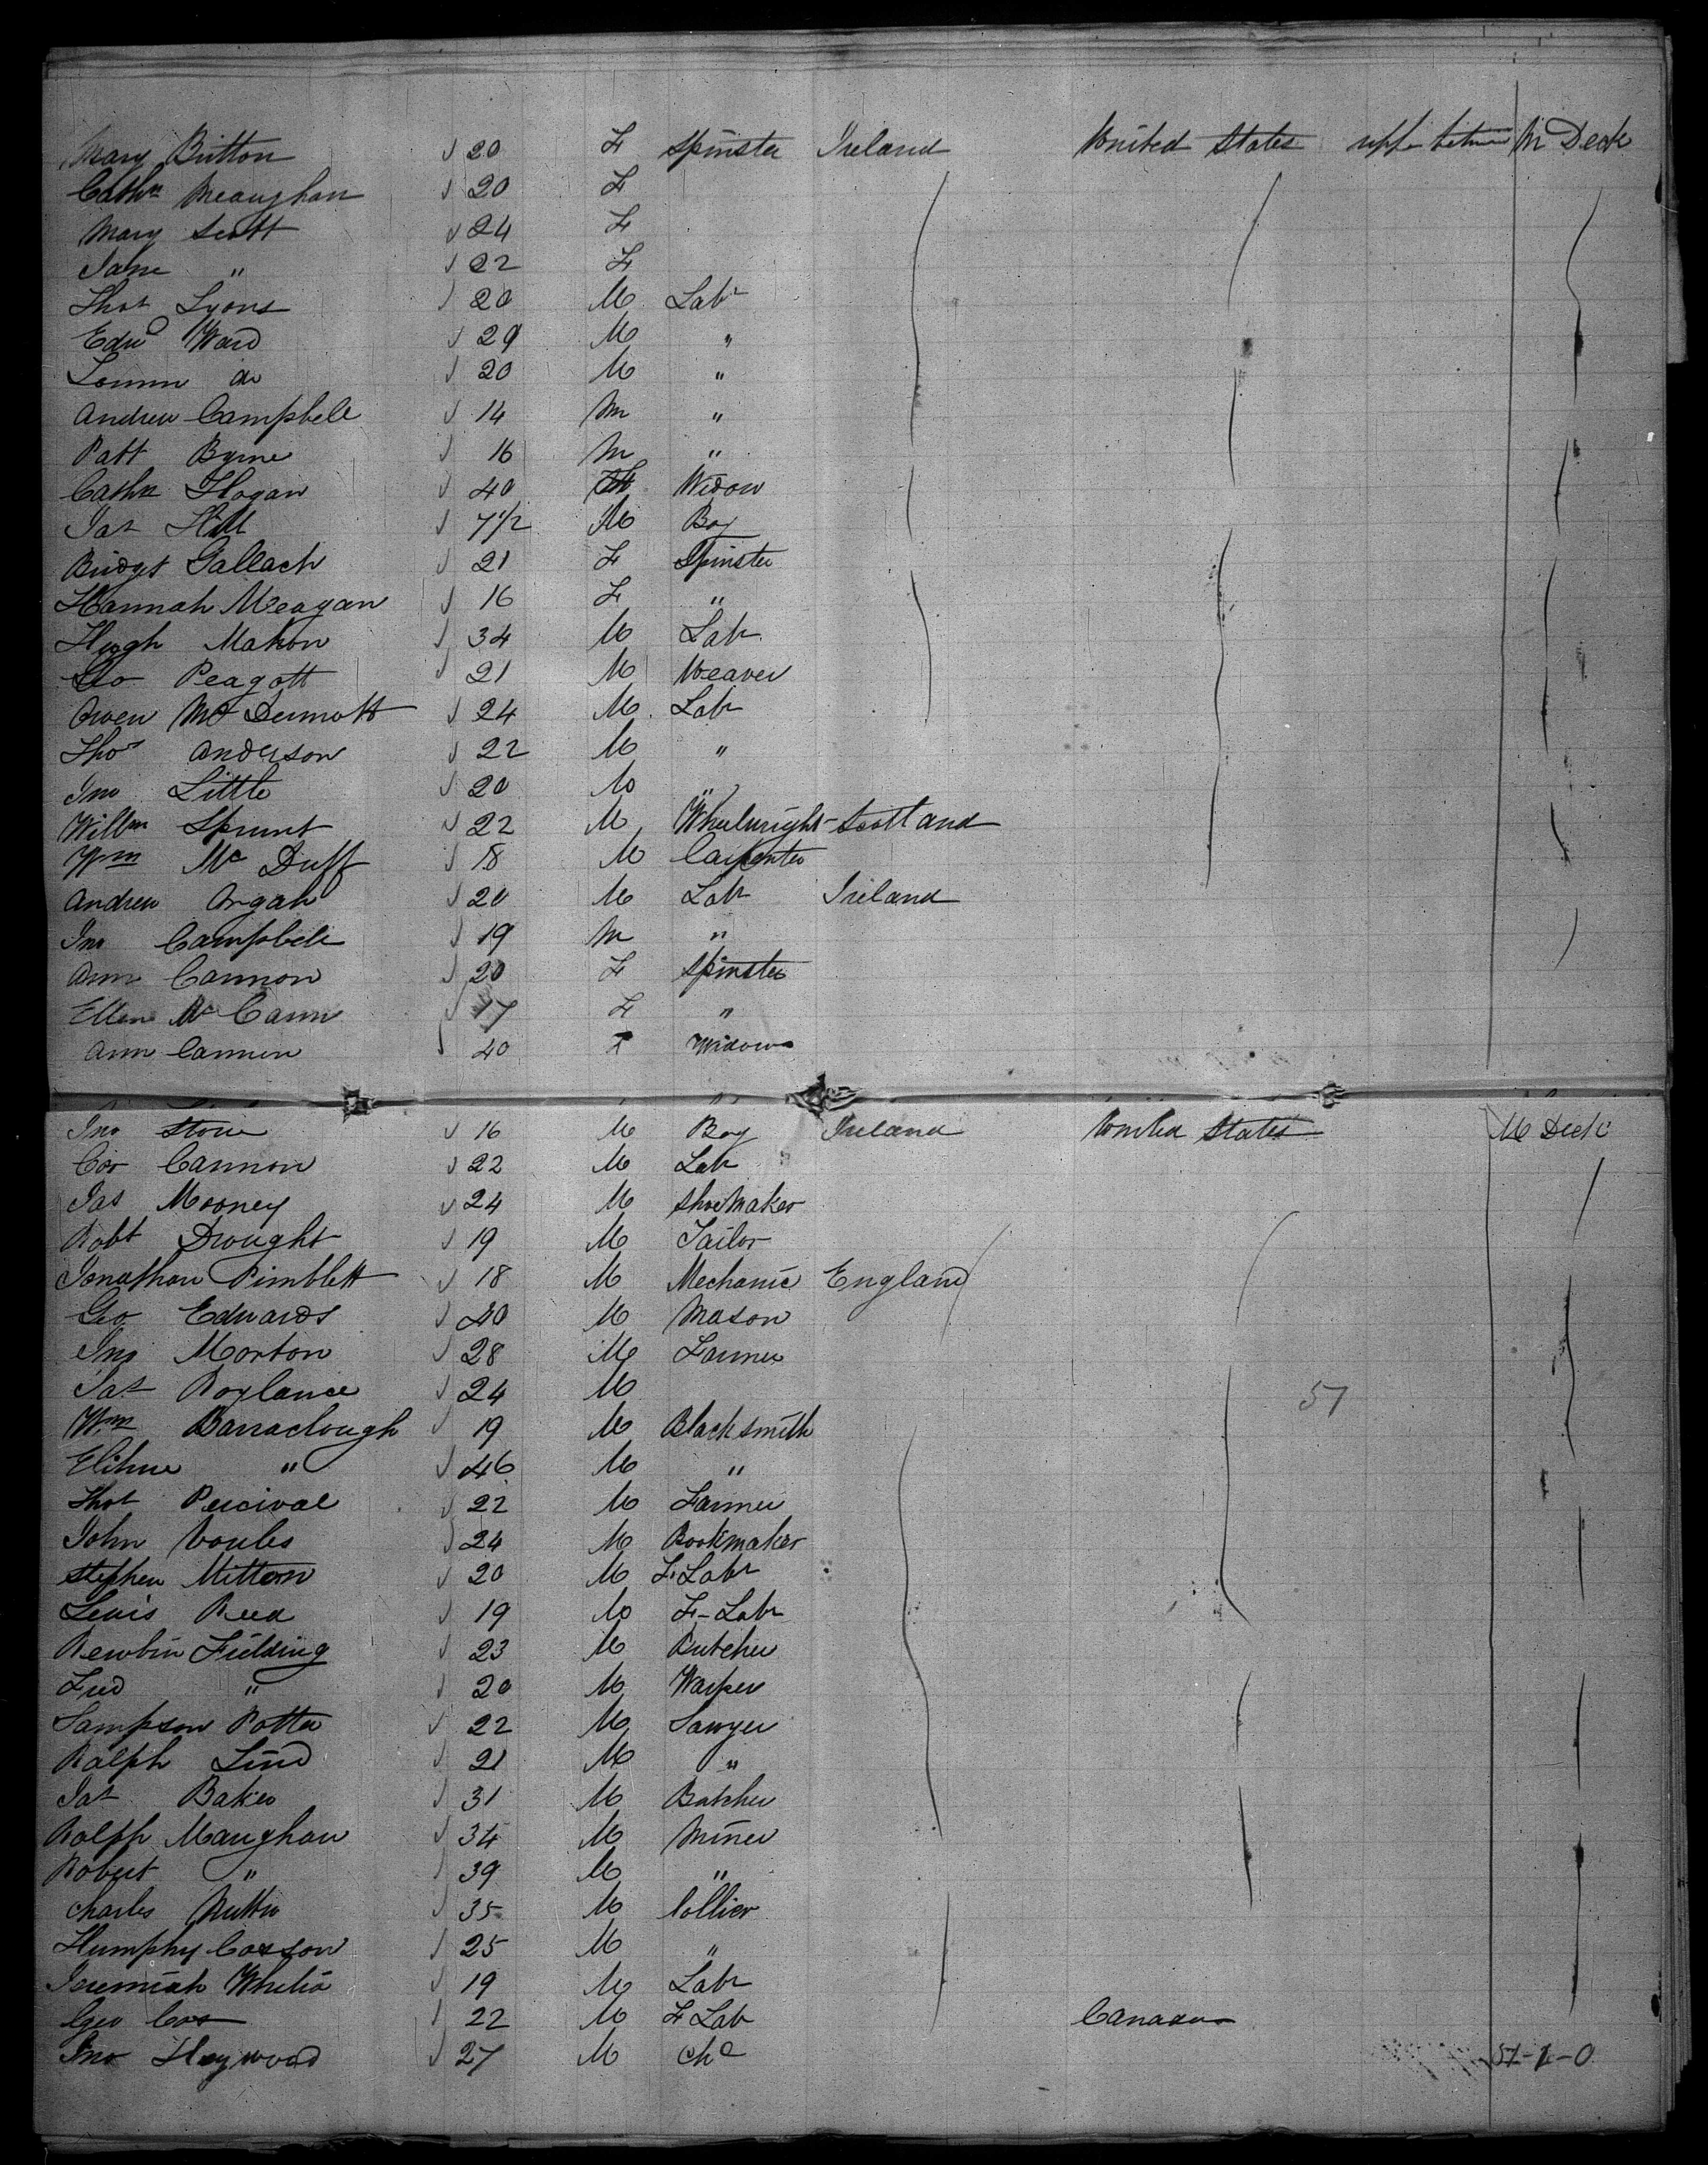 Mary Britton 20 F Spinster Ireland United States upp betwn M Deck
Cathn Meaughan 20 F
Mary Scott 24 F
Jane " 22 F
Thos Lyons 20 M Labr
Edwd Ward 29 M "
do 20 M "
Andrew Campbell 14 M "
Patt Byrne 16 M "
Cathn Hogan 40 F Widow
Jas Hill 7 1/2 M Boy
Bridget Gallach 21 F Spinster
Hannah Meagan 16 F "
Hugh Mahon 34 M Labr
Geo Peagott 21 M Weaver
Owen McDermott 24 M Labr
Thos Anderson 22 M "
Jno Little 20 M "
Willm Sprunt 22 M Wheelwright Scotland
Wm Mc Duff 18 M Carpenter
Andrew Orgah 20 M Labr Ireland
Jno Campbell 19 M "
Ann Cannon 20 F Spinster
Ellen McCann 17 F "
Ann Cannon 40 F Widow
Jno Stone 16 M Boy Ireland United States M Deck
Cannon 22 M Labr
Jas Mooney 24 M Shoemaker
Robt Drought 19 M Tailor
Jonathan Pimblett 18 M Mechanic England
Geo Edwards 40 M Mason
Jno Morton 28 M Farmer
Jas Roylance 24 M 51
Wm Barraclough 19 M Blacksmith
Elihue " 46 M "
Thos Percival 22 M Farmer
John Voules 24 M Bookmaker
Stephen Mittom 20 M F. Labr
Lewis Reed 19 M F-Labr
Rewbin Fielding 23 M Butcher
Fred " 20 M Warper
Sampson Potter 22 M Sawyer
Ralph Lind 21 M "
Jas Baker 31 M Butcher
Ralph Maughan 34 M Miner
Robert " 39 M "
Charles Nutter 35 M Collier
Humphy Cosson 25 M "
Jeremiah 19 M Labr
Geo Cox 22 M F Labr Canada
Jno Heywood 27 M 51-1-0